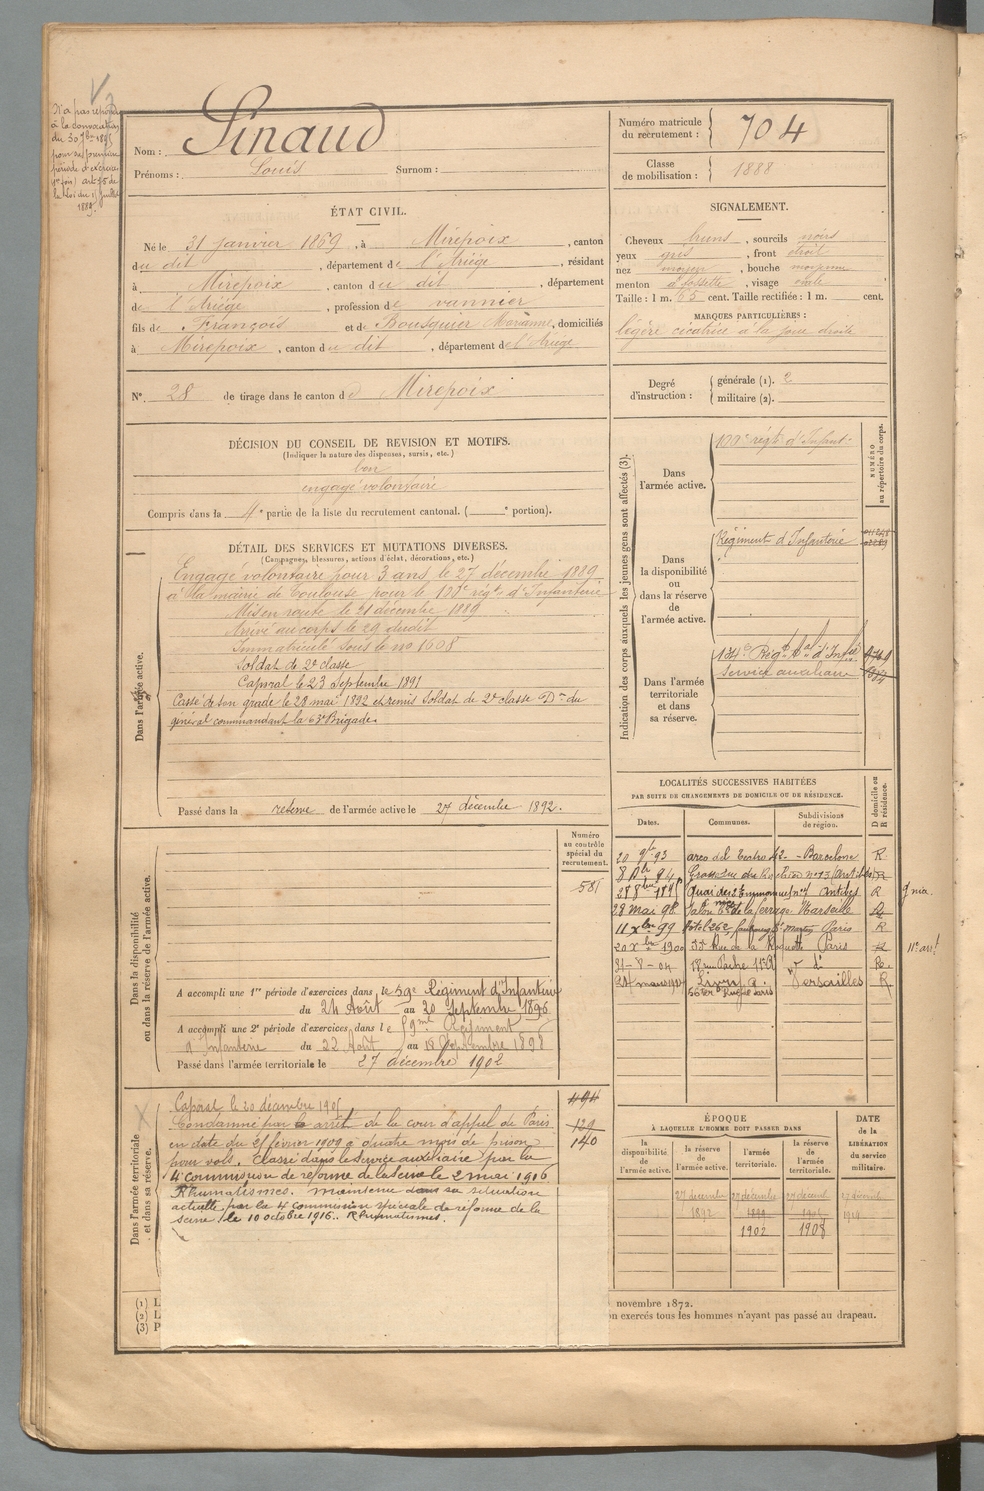 N'a pas répondu
à la convocation
du 30 7bre 1895
pour sa première
période d'exercices
art 75 de
la Loi du 15 juillet
1889.
Nom : Pinaud
Prénoms : Louis Surnom :
Numéro matricule du recrutement : 704
Classe de mobilisation : 1888
ÉTAT CIVIL.
Né le 31 janvier 1869, à Mirepoix, canton
du dit, département de l'Ariège, résidant
à Mirepoix, canton du dit, département
de l'Ariège, profession de vannier
fils de François et de Bousquier Marianne, domiciliés
à Mirepoix, canton du dit, département de l'Ariège
N° 28 de tirage dans le canton de Mirepoix
SIGNALEMENT.
Cheveux bruns, sourcils noirs
yeux gris, front droit
nez moyen, bouche moyenne
menton à fossette, visage ovale
Taille : 1 m. 65 cent. Taille rectifiée : 1 m. cent.
MARQUES PARTICULIÈRES :
légère cicatrice à la joue droite
Degré d'instruction : générale (1). 2
militaire (2).
DÉCISION DU CONSEIL DE REVISION ET MOTIFS.
(Indiquer la nature des dispenses, sursis, etc.)
bon
engagé volontaire
Compris dans la 4e partie de la liste du recrutement cantonal. ( e portion).
DÉTAIL DES SERVICES ET MUTATIONS DIVERSES.
(Campagnes, blessures, actions d'éclat, décorations, etc.)
Dans l'armée active.
Engagé volontaire pour 3 ans le 27 décembre 1889
à la mairie de Toulouse pour le 100e régt d'Infanterie
Mis en route le 21 décembre 1889
Arrivé au corps le 29 dudit
Immatriculé sous le no 1608
Soldat de 2e classe
Caporal le 23 Septembre 1891
Cassé de son grade le 28 mai 1892 et remis Soldat de 2e classe Don du
général commandant la 63e Brigade.
Passé dans la réserve de l'armée active le 27 décembre 1892.
Indication des corps auxquels les jeunes gens sont affectés (3).
NUMÉRO au répertoire du corps.
Dans l'armée active.
100e régt d'Infant.
Dans la disponibilité ou dans la réserve de l'armée active.
Régiment d'Infanterie
Dans l'armée territoriale et dans sa réserve.
134e Régt tal d'Infie
Service auxiliaire
LOCALITÉS SUCCESSIVES HABITÉES
PAR SUITE DE CHANGEMENTS DE DOMICILE OU DE RÉSIDENCE.
Dates. Communes. Subdivisions de région. D domicile ou R résidence.
20 9bre 93 arco del Teatro 42 - Barcelone R
Antibes R
28 8bre 1895 Quai des Antibes R
28 mai 98 Marseille
11 Xbre 99 Hôtel 262, faubourg St martin Paris R
20 Xbre 1900 Rue de la Roquette Paris R 11e arrt
31-8-04 18 rue Pache 11e
mars Livry Versailles R
Dans la disponibilité ou dans la réserve de l'armée active.
Numéro au contrôle spécial du recrutement.
581
A accompli une 1re période d'exercices dans le 59e Régiment d'Infanterie
du 24 Août au 20 Septembre 1896
A accompli une 2e période d'exercices dans le 59me Régiment
d'Infanterie du 22 Août au 18 Septembre 1898
Passé dans l'armée territoriale le 27 décembre 1902
Dans l'armée territoriale et dans sa réserve.
494
129
140
Caporal le 20 décembre
Condamné par arrêt de la cour d'appel de Paris
en date du février 1909 à quatre mois de prison
pour vols. Classé dans le service auxiliaire par la
4e commission de réforme de la Seine le 2 mai 1916
Rhumatismes. Maintenu dans sa situation
actuelle par la 4e commission spéciale de réforme de la
Seine le 10 octobre 1916. Rhumatismes.
ÉPOQUE
À LAQUELLE L'HOMME DOIT PASSER DANS
la disponibilité de l'armée active. la réserve de l'armée active. l'armée territoriale. la réserve de l'armée territoriale.
DATE de la LIBÉRATION du service militaire.
27 décembre 27 décembre 27 décemb 27 décemb
1892 1899
1902 1908
(1) L
(2) L
(3) P
novembre 1872.
on exercés tous les hommes n'ayant pas passé au drapeau.